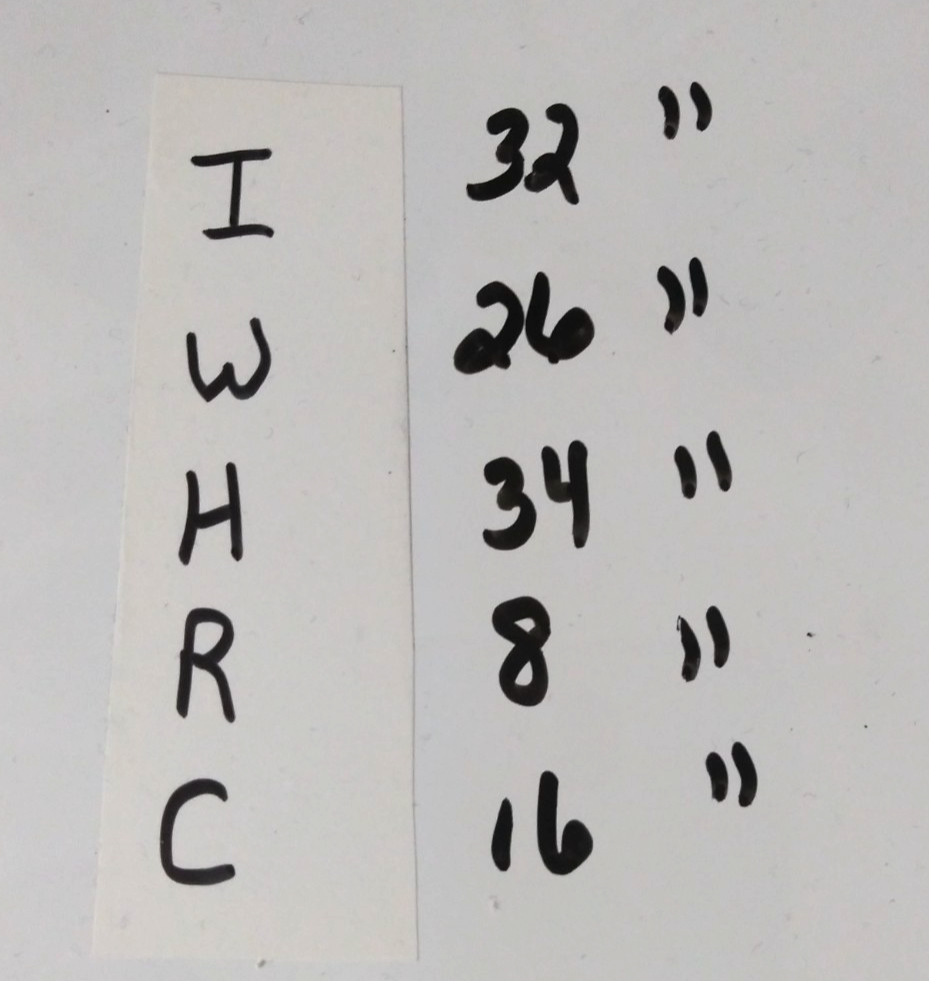 I 32 "
W 26 "
H 34 "
R 8 "
C 16 "